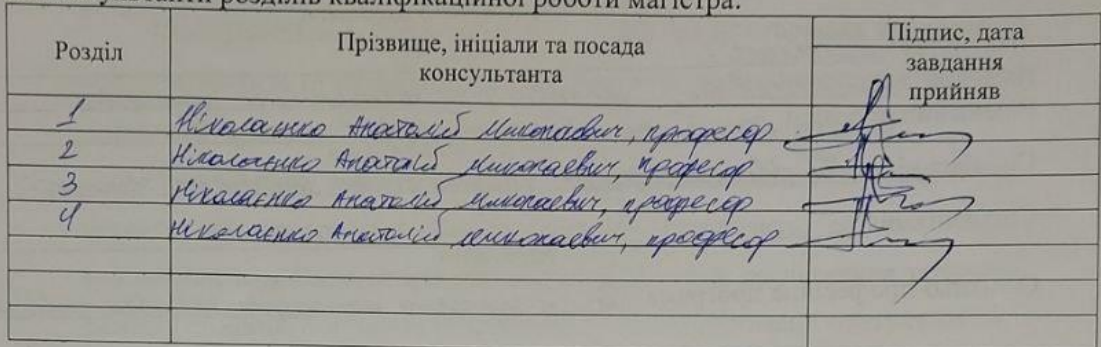 розділів кваліфікаційної роботи магістра:
Розділ Прізвище, ініціали та посада консультанта Підпис, дата
завдання прийняв
1 Ніколаєнко Анатолій Миколаєвич, професор
2 Ніколаєнко Анатолій Миколаєвич, професор
3 Ніколаєнко Анатолій Миколаєвич, професор
4 Ніколаєнко Анатолій Миколаєвич, професор